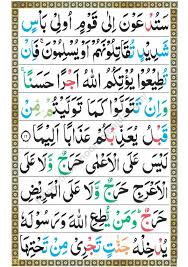 سَتُدْعَوْنَ اِلٰى قَوْمٍ اُولِىْ بَاْسٍ
شَدِيْدٍ تُقَاتِلُوْنَهُمْ اَوْ يُسْلِمُوْنَ ۚ فَاِنْ
تُطِيْعُوْا يُؤْتِكُمُ اللّٰهُ اَجْرًا حَسَنًا ۚ
وَاِنْ تَتَوَلَّوْا كَمَا تَوَلَّيْتُمْ مِّنْ
قَبْلُ يُعَذِّبْكُمْ عَذَابًا اَلِيْمًا ﴿۱۶﴾
لَيْسَ عَلَى الْاَعْمٰى حَرَجٌ وَّلَا عَلَى
الْاَعْرَجِ حَرَجٌ وَّلَا عَلَى الْمَرِيْضِ
حَرَجٌ ؕ وَمَنْ يُّطِعِ اللّٰهَ وَرَسُوْلَهٗ
يُدْخِلْهُ جَنّٰتٍ تَجْرِىْ مِنْ تَحْتِهَا